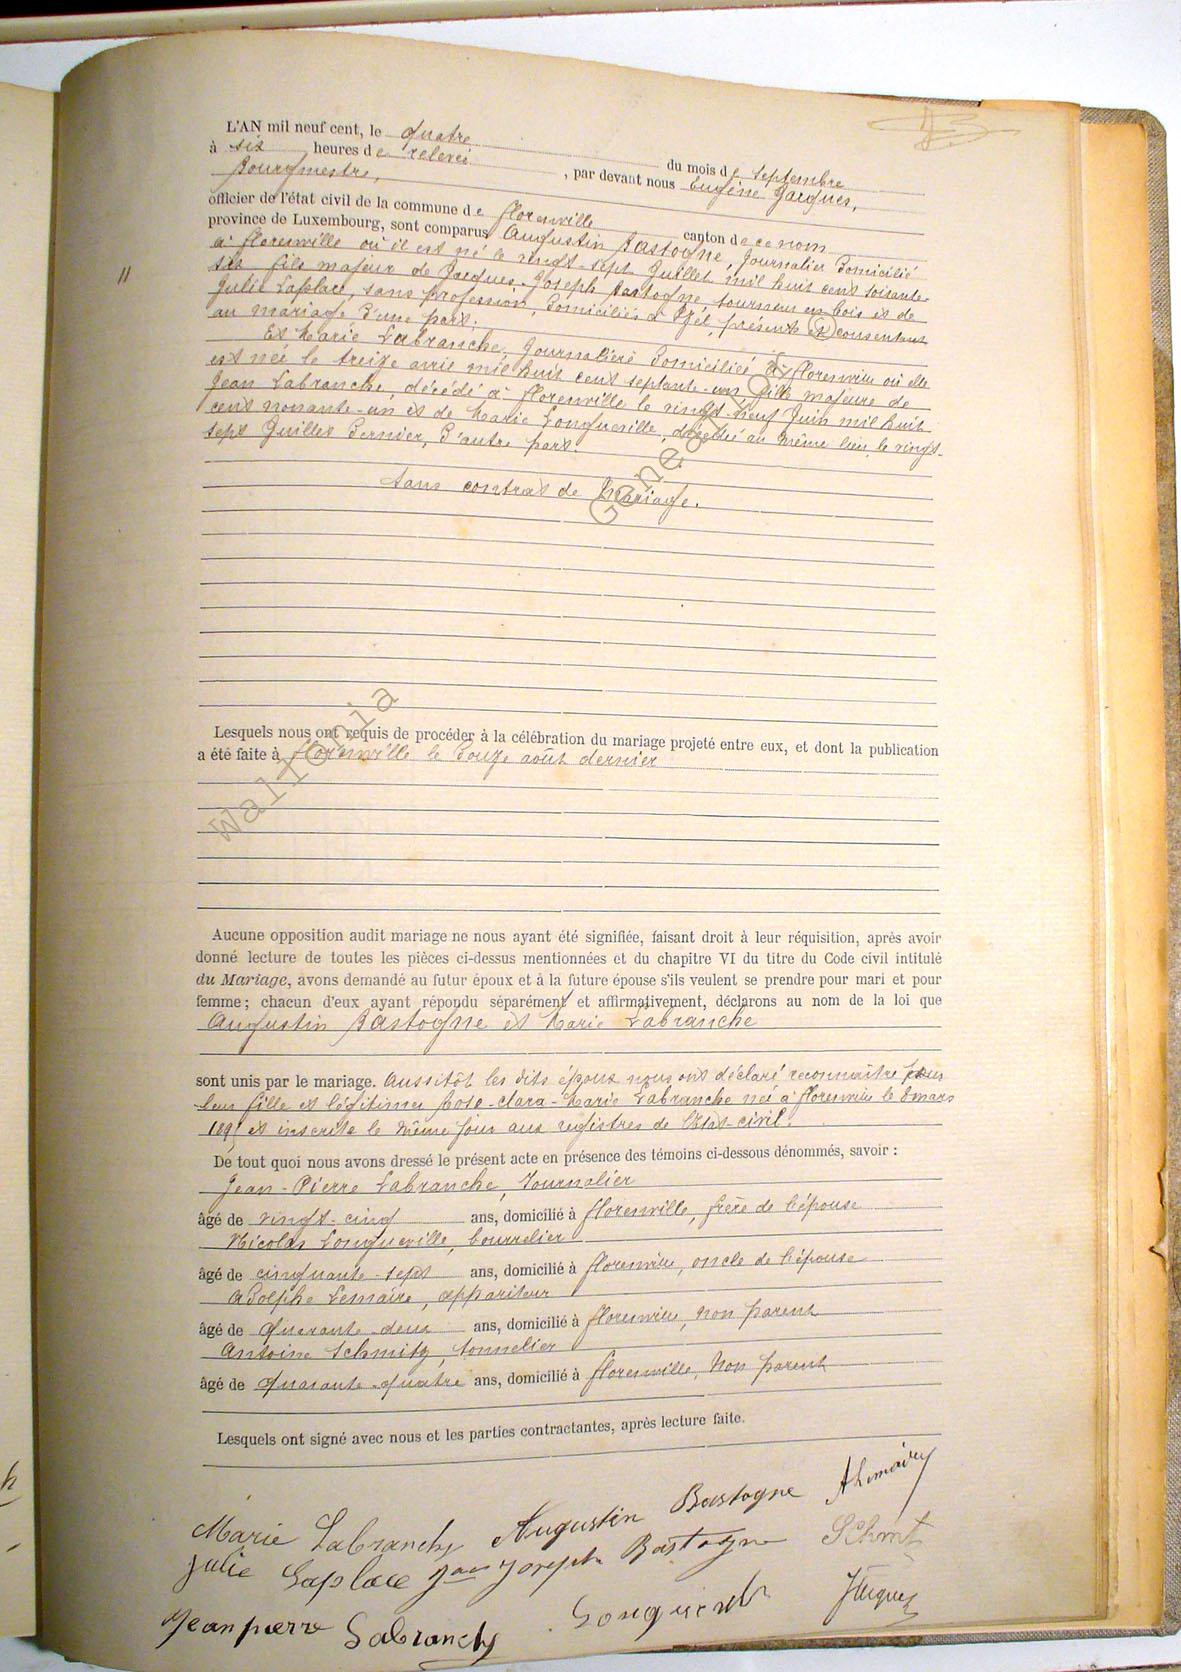 L'AN mil neuf cent, le quatre du mois de Septembre
à six heures de relevée, par devant nous Eugène Jacques,
Bourgmestre,
officier de l'état civil de la commune de Florenville canton de ce nom
province de Luxembourg, sont comparus Augustin Bastogne, Journalier domicilié
à Florenville où il est né le vingt-sept Juillet mil huit cent soixante
six fils majeur de Jacques-Joseph Bastogne, tourneur en bois et de
Julie Laplace, sans profession, domiciliés à présents et consentant
au mariage d'une part;
11
Et Marie Labranche, Journalière domiciliée à Florenville où elle
est née le treize avril mil huit cent septante-un fille majeure de
Jean Labranche, décédé à Florenville le vingt-neuf Juin mil huit
cent nonante-un et de Marie Longueville, décédée au même lieu le vingt-
sept Juillet dernier, d'autre part.
Sans contrat de Mariage.
Lesquels nous ont requis de procéder à la célébration du mariage projeté entre eux, et dont la publication
a été faite à Florenville le douze août dernier
Wallonia
Aucune opposition audit mariage ne nous ayant été signifiée, faisant droit à leur réquisition, après avoir
donné lecture de toutes les pièces ci-dessus mentionnées et du chapitre VI du titre du Code civil intitulé
du Mariage, avons demandé au futur époux et à la future épouse s'ils veulent se prendre pour mari et pour
femme; chacun d'eux ayant répondu séparément et affirmativement, déclarons au nom de la loi que
Augustin Bastogne et Marie Labranche
sont unis par le mariage. Aussitôt les dits époux nous ont déclaré reconnaître pour
leur fille et légitimer Rose-Clara-Marie Labranche née à Florenville le 8 mars
et inscrite le même jour aux registres de l'Etat-civil.
De tout quoi nous avons dressé le présent acte en présence des témoins ci-dessous dénommés, savoir :
Jean-Pierre Labranche, Journalier
âgé de vingt-cinq ans, domicilié à Florenville, frère de l'épouse
Nicolas Longueville, bourrelier
âgé de cinquante-sept ans, domicilié à Florenville, oncle de l'épouse
Adolphe Lemaire, appariteur
âgé de quarante-deux ans, domicilié à Florenville, non parent
Antoine Schmitz, tonnelier
âgé de quarante-quatre ans, domicilié à Florenville, Non parent
Lesquels ont signé avec nous et les parties contractantes, après lecture faite.
Marie Labranche Augustin Bastogne A Lemaire
Julie Laplace Joseph Bastogne Schmit
Jeanpierre Labranche